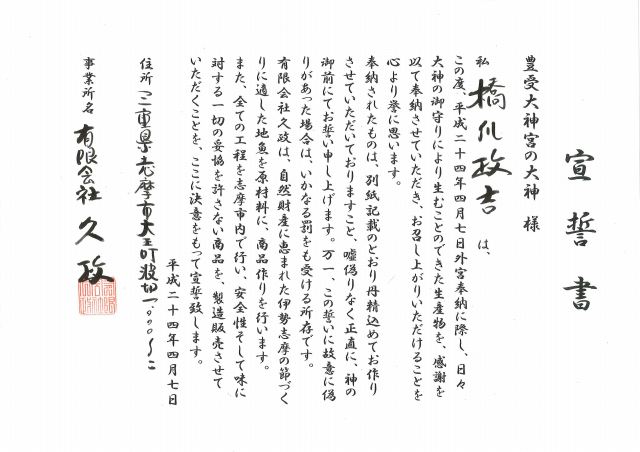 宣誓書
豊受大神宮の大神　様
私　橋爪政吉　は、
この度、平成二十四年四月七日外宮奉納に際し、日々
大神の御守りにより生むことのできた生産物を、感謝を
以て奉納させていただき、お召し上がりいただけることを
心より誉に思います。
奉納されたものは、別紙記載のとおり丹精込めてお作り
させていただいておりますこと、嘘偽りなく正直に、神の
御前にてお誓い申し上げます。万一、この誓いに故意に偽
りがあった場合は、いかなる罰をも受ける所存です。
有限会社久政は、自然財産に恵まれた伊勢志摩の節づく
りに適した地魚を原材料に、商品作りを行います。
また、全ての工程を志摩市内で行い、安全性そして味に
対する一切の妥協を許さない商品を、製造販売させて
いただくことを、ここに決意をもって宣誓致します。
平成二十四年四月七日
住所　三重県志摩市大王町波切
事業所名　有限会社　久政